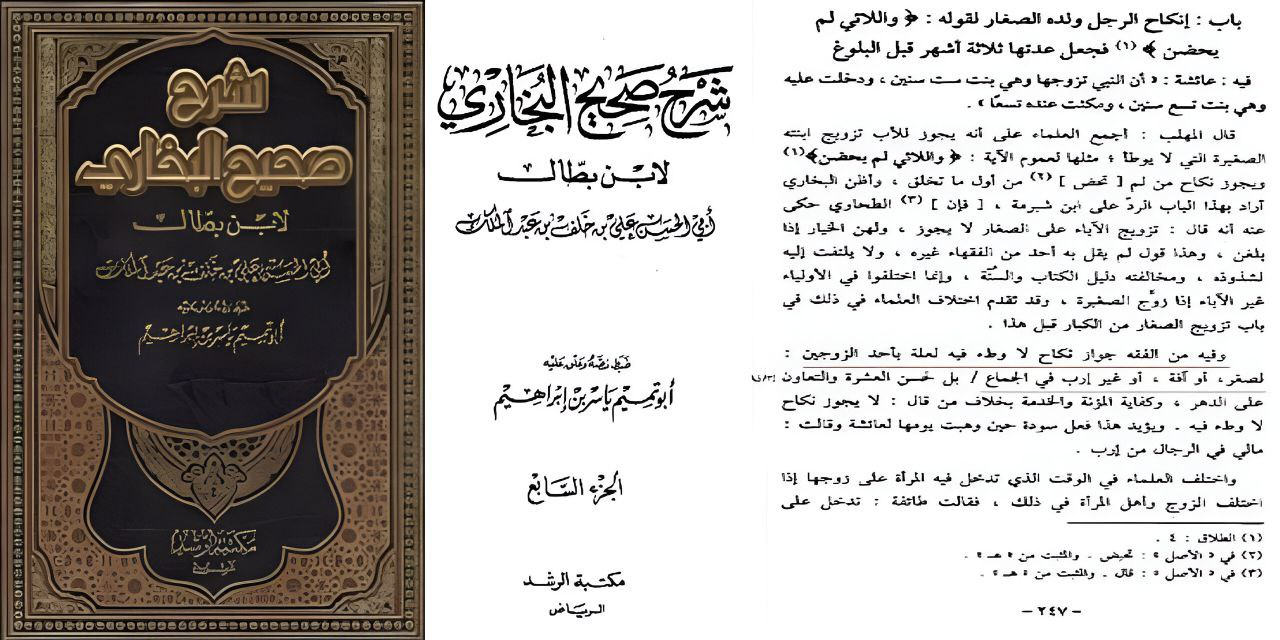 شرح
صحيح البخاري
لابن بطال
شَرْحُ صَحِيحِ البُخَارِي
لابْن بطّال
أبي الحسَن علي بن خلف بن عبد الملك
ضبط نصّه وعلق عليه
أبو تميم ياسر بن إبراهيم
الجزء السّابع
مكتبة الرشد
الرياض
باب : إنكاح الرجل ولده الصغار لقوله : ﴿ واللائي لم
يحضن ﴾ (١) فجعل عدتها ثلاثة أشهر قبل البلوغ
فيه : عائشة : « أن النبي تزوجها وهي بنت ست سنين ، ودخلت عليه
وهي بنت تسع سنين ، ومكثت عنده تسعًا » .
قال المهلب : أجمع العلماء على أنه يجوز للأب تزويج ابنته
الصغيرة التي لا يوطأ ؛ مثلها لعموم الآية : ﴿ واللائي لم يحضن﴾(١)
ويجوز نكاح من لم [ تحض ] (٢) من أول ما تخلق ، وأظن البخاري
أراد بهذا الباب الردّ على ابن شبرمة ، [ فإن ] (٣) الطحاوي حكى
عنه أنه قال : تزويج الآباء على الصغار لا يجوز ، ولهن الخيار إذا
بلغن ، وهذا قول لم يقل به أحد من الفقهاء غيره ، ولا يلتفت إليه
لشذوذه ، ومخالفته دليل الكتاب والسنّة ، وإنما اختلفوا في الأولياء
غير الآباء إذا زوَّج الصغيرة ، وقد تقدم اختلاف العلماء في ذلك في
باب تزويج الصغار من الكبار قبل هذا .
وفيه من الفقه جواز نكاح لا وطء فيه لعلة بأحد الزوجين :
لصغر، أو آفة ، أو غير إرب في الجماع / بل لحسن العشرة والتعاون
على الدهر ، وكفاية المؤنة والخدمة بخلاف من قال : لا يجوز نكاح
لا وطء فيه . ويؤيد هذا فعل سودة حين وهبت يومها لعائشة وقالت :
مالي في الرجال من إرب .
واختلف العلماء في الوقت الذي تدخل فيه المرأة على زوجها إذا
اختلف الزوج وأهل المرأة في ذلك ، فقالت طائفة : تدخل على
(١) الطلاق : ٤ .
(٢) في « الأصل » : تحيض . والمثبت من « هـ » .
(٣) في « الأصل » : قال . والمثبت من « هـ » .
- ٢٤٧ -